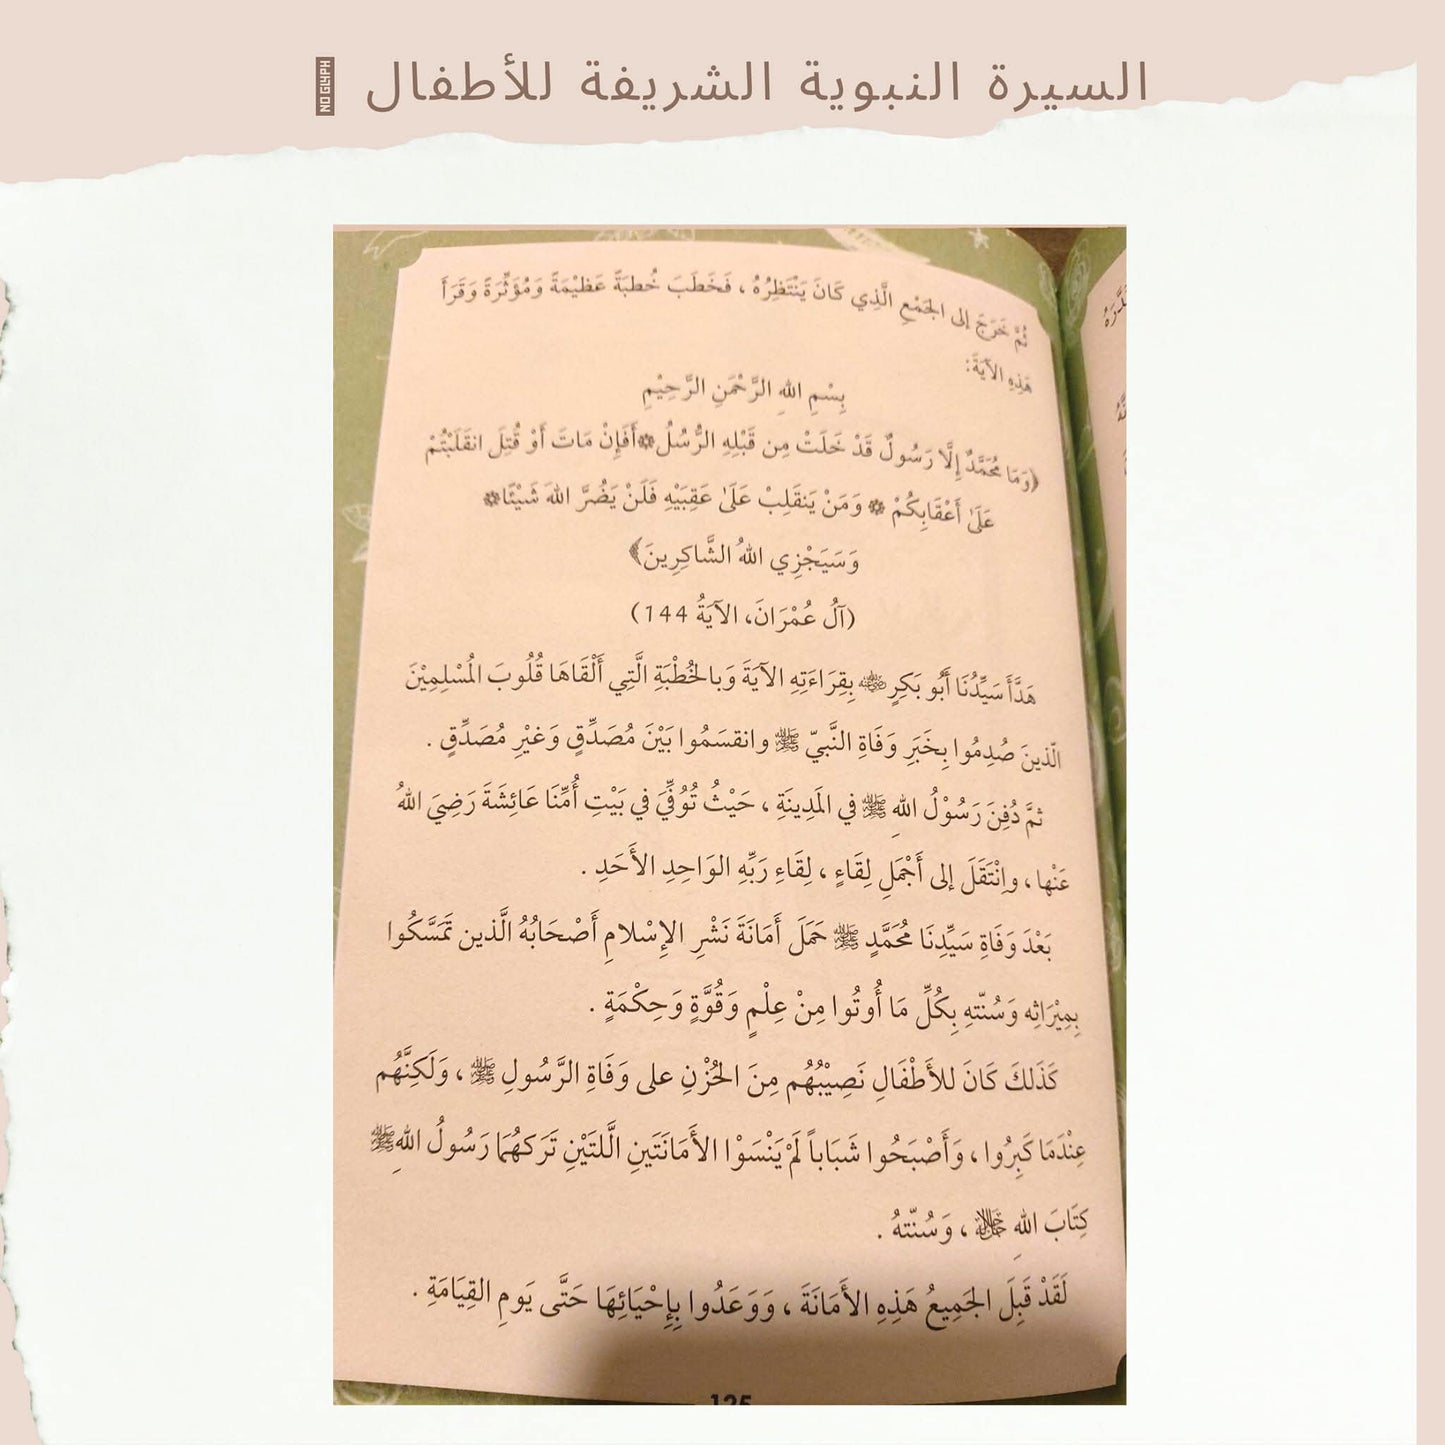 السيرة النبوية الشريفة للأطفال
NO GLYPH
ثُمَّ خَرَجَ إلى الجَمْعِ الَّذِي كَانَ يَنْتَظِرُهُ ، فَخَطَبَ خُطبَةً عَظيْمَةً وَمُؤَثِّرَةً وَقَرَأَ
هَذِهِ الآيَةَ:
بِسْمِ اللهِ الرَّحْمَنِ الرَّحِيْمِ
﴿وَمَا مُحَمَّدٌ إِلَّا رَسُولٌ قَدْ خَلَتْ مِن قَبْلِهِ الرُّسُلُ۞أَفَإِنْ مَاتَ أَوْ قُتِلَ انقَلَبْتُمْ
عَلَىٰ أَعْقَابِكُمْ ۞ وَمَنْ يَنقَلِبْ عَلَىٰ عَقِبَيْهِ فَلَنْ يَضُرَّ اللهَ شَيْئًا۞
وَسَيَجْزِي اللهُ الشَّاكِرِينَ﴾
(آلُ عُمْرَانَ، الآيَةُ 144)
هَدَّأَ سَيِّدُنَا أَبُو بَكِرٍ ﵁ بِقِرَاءَتِهِ الآيَةَ وَبالخُطْبَةِ الَّتِي أَلْقَاهَا قُلُوبَ المُسْلِمِيْنَ
الّذينَ صُدِمُوا بِخَبَرِ وَفَاةِ النَّبيّ ﷺ وانقسَمُوا بَيْنَ مُصَدِّقٍ وَغيْرِ مُصَدِّقٍ .
ثمَّ دُفِنَ رَسُوْلُ اللهِ ﷺ في المَدِينَةِ ، حَيْثُ تُوُفِّيَ في بَيْتِ أُمِّنَا عَائِشَةَ رَضِيَ اللهُ
عَنْها ، واِنْتَقَلَ إلى أَجْمَلِ لِقَاءٍ ، لِقَاءِ رَبِّهِ الوَاحِدِ الأَحَدِ .
بَعْدَ وَفَاةِ سَيِّدِنَا مُحَمَّدٍ ﷺ حَمَلَ أَمَانَةَ نَشْرِ الإِسْلامِ أَصْحَابُهُ الَّذين تَمَسَّكُوا
بِمِيْرَاثِه وَسُنّتهِ بِكُلِّ مَا أُوتُوا مِنْ عِلْمٍ وَقُوَّةٍ وَحِكْمَةٍ .
كَذَلكَ كَانَ للأَطْفَالِ نَصِيْبُهُم مِنَ الحُزْنِ على وَفَاةِ الرَّسُولِ ﷺ ، وَلَكِنَّهُم
عِنْدَمَا كَبِرُوا ، وَأَصْبَحُوا شَبَاباً لَمْ يَنْسَوْا الأَمَانَتَينِ الَّلتَيْنِ تَرَكهُمَا رَسُولُ اللهِ ﷺ
كِتَابَ اللهِ ﷻ ، وَسُنّتهُ .
لَقَدْ قَبِلَ الجَمِيعُ هَذِهِ الأَمَانَةَ ، وَوَعَدُوا بِإِحْيَائِهَا حَتَّى يَومِ القِيَامَةِ .
125